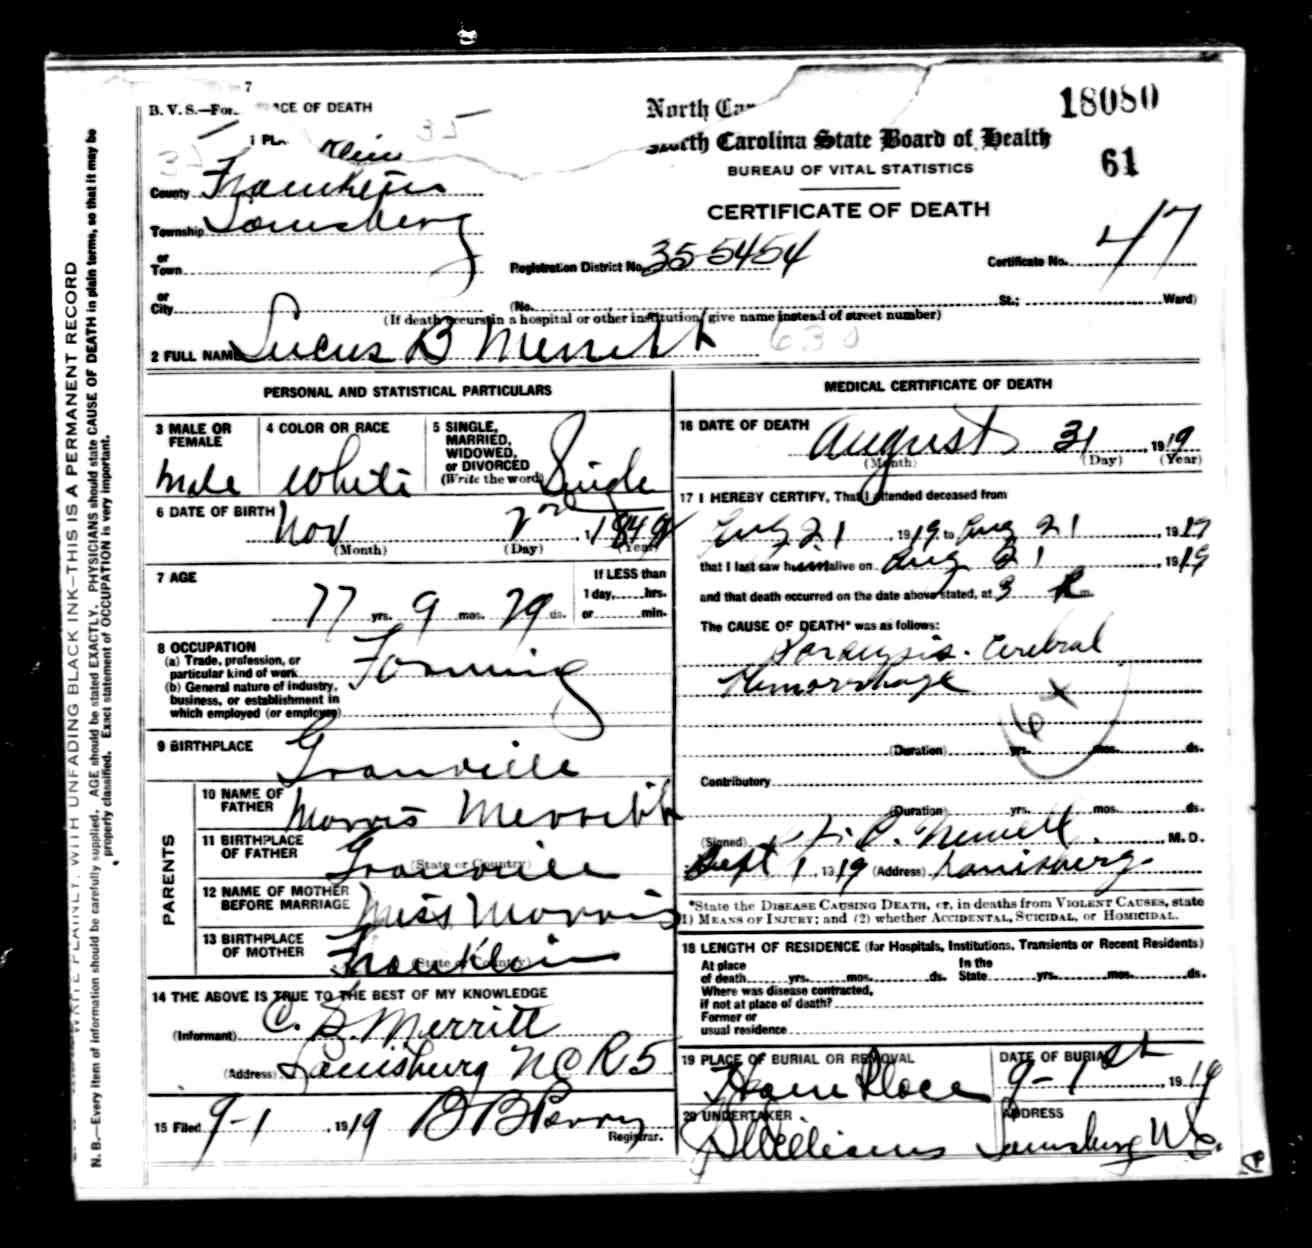 B. V. S.—For. 7
ACE OF DEATH
North Ca
North Carolina State Board of Health
BUREAU OF VITAL STATISTICS
CERTIFICATE OF DEATH
18080
61
35
1 PL
klin
County Franklin
Township Louisburg
or
Town
Registration District No. 35-5454
Certificate No. 47
or
City (No. St.; Ward)
(If death occurs in a hospital or other institution, give name instead of street number)
2 FULL NAME Lucus B Merritt 630
PERSONAL AND STATISTICAL PARTICULARS
3 MALE OR FEMALE Male
4 COLOR OR RACE White
5 SINGLE, MARRIED, WIDOWED, or DIVORCED (Write the word) Single
6 DATE OF BIRTH Nov 2nd
(Month) (Day) (Year)
7 AGE
77 yrs. 9 mos. 29 ds.
If LESS than
1 day, hrs.
or min.
8 OCCUPATION Farming
(a) Trade, profession, or
particular kind of work
(b) General nature of industry,
business, or establishment in
which employed (or employer)
9 BIRTHPLACE Granville
PARENTS
10 NAME OF FATHER Morris Merritt
11 BIRTHPLACE OF FATHER Granville
(State or Country)
12 NAME OF MOTHER BEFORE MARRIAGE Miss Morris
13 BIRTHPLACE OF MOTHER Franklin
(State or Country)
14 THE ABOVE IS TRUE TO THE BEST OF MY KNOWLEDGE
(Informant) C. B. Merritt
(Address) Louisburg N C R 5
15 Filed 9-1, 1919 B B Perry
Registrar.
MEDICAL CERTIFICATE OF DEATH
16 DATE OF DEATH August 31 1919
(Month) (Day) (Year)
17 I HEREBY CERTIFY, That I attended deceased from
21 1919, to Aug 21 1919
that I last saw him alive on Aug 21, 1919
and that death occurred on the date above stated, at 3 P m.
The CAUSE OF DEATH* was as follows:
Paralysis. Cerebral
Hemorrhage
64
(Duration) yrs. mos. ds.
Contributory
(Duration) yrs. mos. ds.
(Signed) H. P. Newell, M. D.
Sept 1, 1919 (Address) Louisburg
*State the DISEASE CAUSING DEATH, or, in deaths from VIOLENT CAUSES, state
1) MEANS OF INJURY; and (2) whether ACCIDENTAL, SUICIDAL, or HOMICIDAL.
18 LENGTH OF RESIDENCE (for Hospitals, Institutions, Transients or Recent Residents)
At place of death yrs. mos. ds. In the State yrs. mos. ds.
Where was disease contracted,
if not at place of death?
Former or
usual residence
19 PLACE OF BURIAL OR REMOVAL Home Place
DATE OF BURIAL 9-1st, 1919
20 UNDERTAKER Williams
ADDRESS Louisburg N.C.
WRITE PLAINLY, WITH UNFADING BLACK INK—THIS IS A PERMANENT RECORD
N. B.—Every item of information should be carefully supplied. AGE should be stated EXACTLY. PHYSICIANS should state CAUSE OF DEATH in plain terms, so that it may be
properly classified. Exact statement of OCCUPATION is very important.